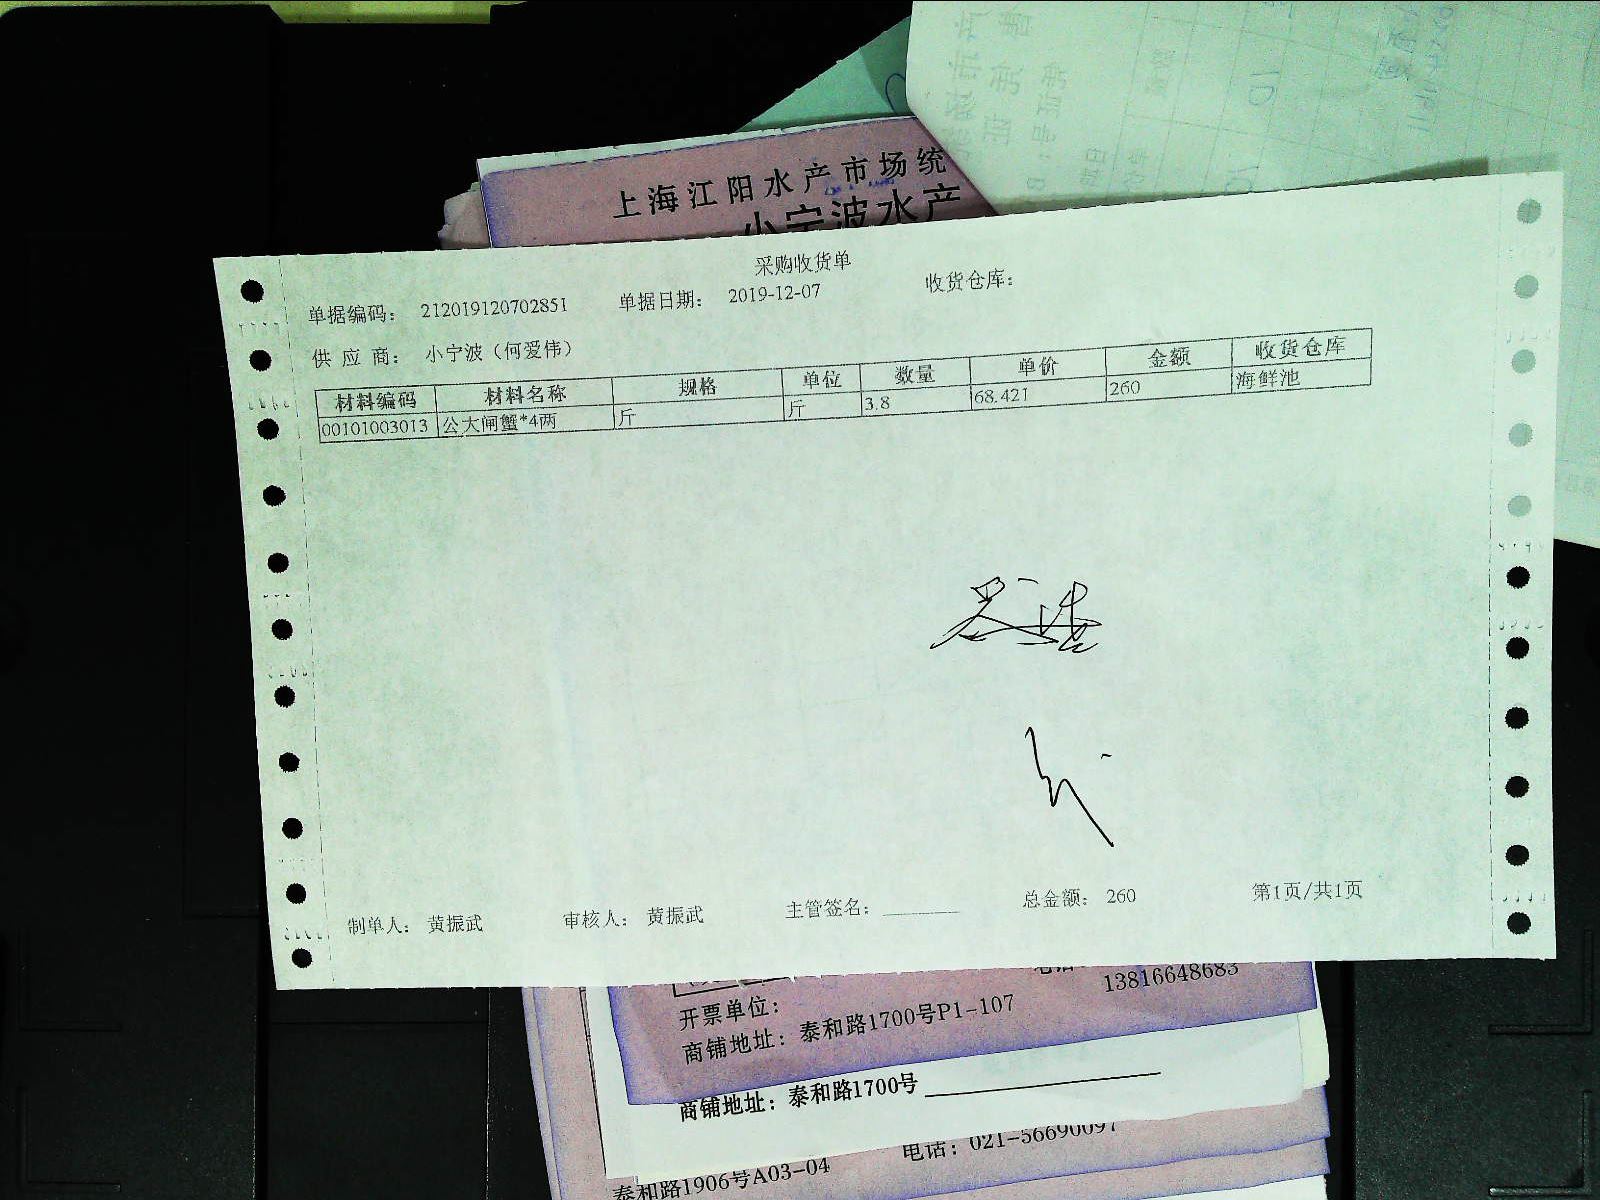 上海江阳水产市场统
小宁波水产
采购收货单
单据编码: 212019120702851 单据日期: 2019-12-07 收货仓库:
供 应 商: 小宁波（何爱伟）
材料编码 材料名称 规格 单位 数量 单价 金额 收货仓库
00101003013 公大闸蟹*4两 斤 斤 3.8 68.421 260 海鲜池
制单人: 黄振武 审核人: 黄振武 主管签名: 总金额: 260 第1页/共1页
13816648683
开票单位:
商铺地址: 泰和路1700号P1-107
商铺地址: 泰和路1700号
电话: 021-56690097
泰和路1906号A03-04